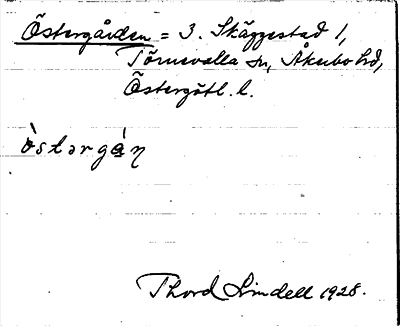 Östergården = 3. Skäggestad 1,
Törnevalla sn, Åkerbo hd,
Östergötl. l.
òstərgán
Thord Lindell 1928.